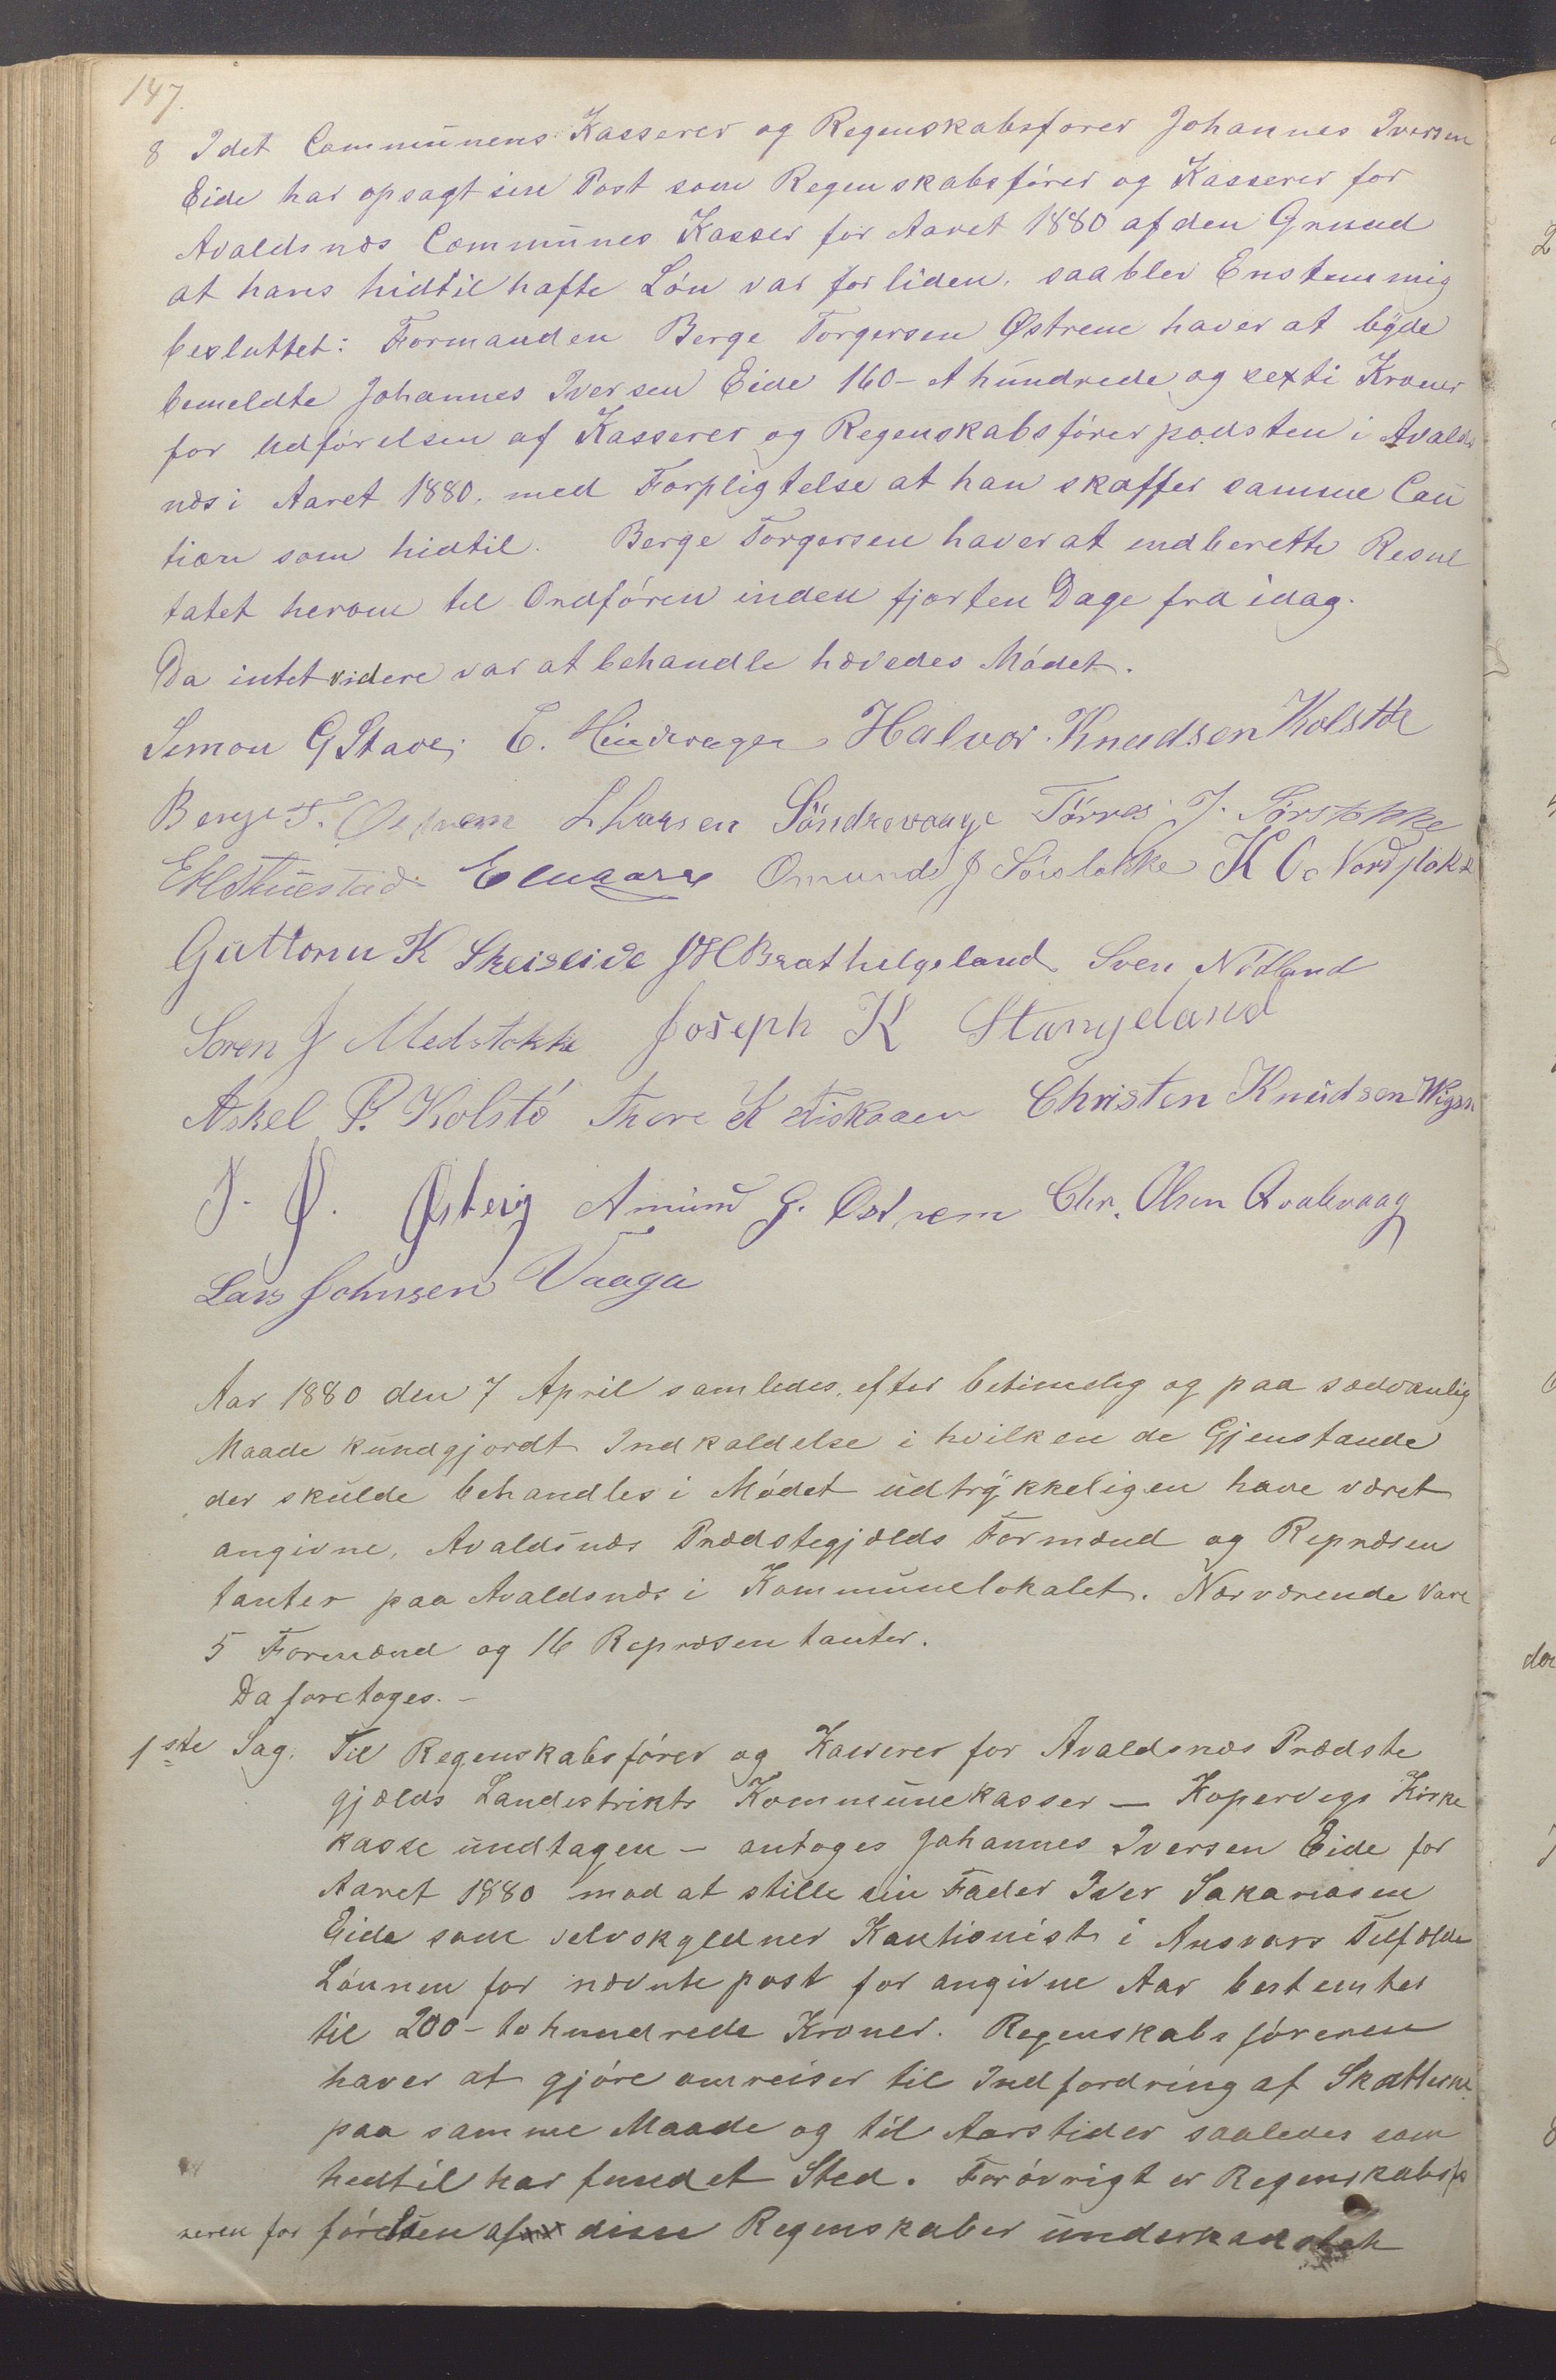 147.
8 Idet Communens Kasserer og Regenskabsfører Johannes Iversen
Eide har opsagt sin Post som Regenskabsfører og Kasserer for
Avaldsnæs Communes Kasser for Aaret 1880 af den Grund
at hans hidtil hafte Løn var for liden, saa blev Enstemmig
besluttet: Formanden Berge Torgersen Østrem haver at byde
bemeldte Johannes Iversen Eide 160 - et hundrede og sexti Kroner
for Udførelsen af Kasserer og Regenskabsfører posten i Avalds
næs i Aaret 1880. med Forpligtelse at han skaffer samme Cau
tion som hidtil. Berge Torgersen haver at indberette Resul
tatet herom til Ordføren inden fjorten Dage fra idag.
Da intet videre var at behandle hævedes Mødet.
Simon G Stave, E. Hinderager Halvor Knudsen Kolstø
Berge T. Østrem L Larsen Søndrevaage Tørres J. Sørstokke
Omund J Sørstokke K O. Nordstokke
Guttorm K Skeiseide J H Bratthelgeland Sven Nødland
Soren J Medstokke Joseph K Stangeland
Askel P. Kolstø Thore K Fiskaaen Christen Knudsen
J. Ø. Østeig Amund G. Østrem Chr. Olsen Qvalevaag
Lars Johnsen Vaaga
Aar 1880 den 7 April samledes, efter betimelig og paa sædvanlig
Maade kundgjordt Indkaldelse i hvilken de Gjenstande
der skulde behandles i Mødet udtrykkeligen have været
angivne, Avaldsnæs Prædstegjælds Formænd og Repræsen
tanter paa Avaldsnæs i Kommunelokalet. Nærværende vare
5 Formænd og 16 Repræsentanter.
Da foretoges. -
1ste Sag. Til Regenskabsfører og Kasserer for Avaldsnæs Prædste
gjælds Landistrikts Kommunekasser - Kopervigs Kirke
kasse undtagen - antoges Johannes Iversen Eide for
Aaret 1880 mod at stille sin Fader Iver Sakariasen
Eide som selvskyldner Kautionist i Ansvars Tilfælde
Lønnen for nævnte post for angivne Aar bestemtes
til 200 - to hundrede Kroner. Regenskabsføreren
haver at gjøre omreiser til Indfordring af Skatterne
paa samme Maade og til Aarstider saaledes som
hidtil har fundet Sted. Forøvrigt er Regenskabsfø
reren for førelsen af disse Regenskaber underkastet